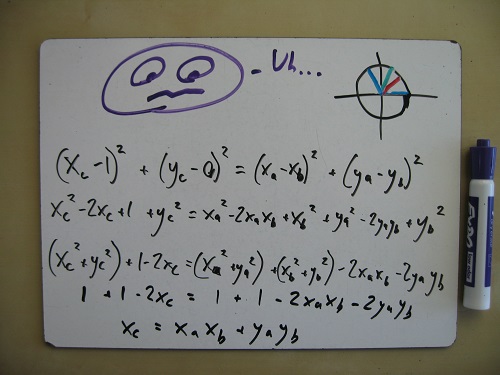 - Uh...
(x_c - 1)² + (y_c - 0)² = (x_a - x_b)² + (y_a - y_b)²
x_c² - 2x_c + 1 + y_c² = x_a² - 2x_a x_b + x_b² + y_a² - 2y_a y_b + y_b²
(x_c² + y_c²) + 1 - 2x_c = (x_a² + y_a²) + (x_b² + y_b²) - 2x_a x_b - 2y_a y_b
1 + 1 - 2x_c = 1 + 1 - 2x_a x_b - 2y_a y_b
x_c = x_a x_b + y_a y_b
EXPO